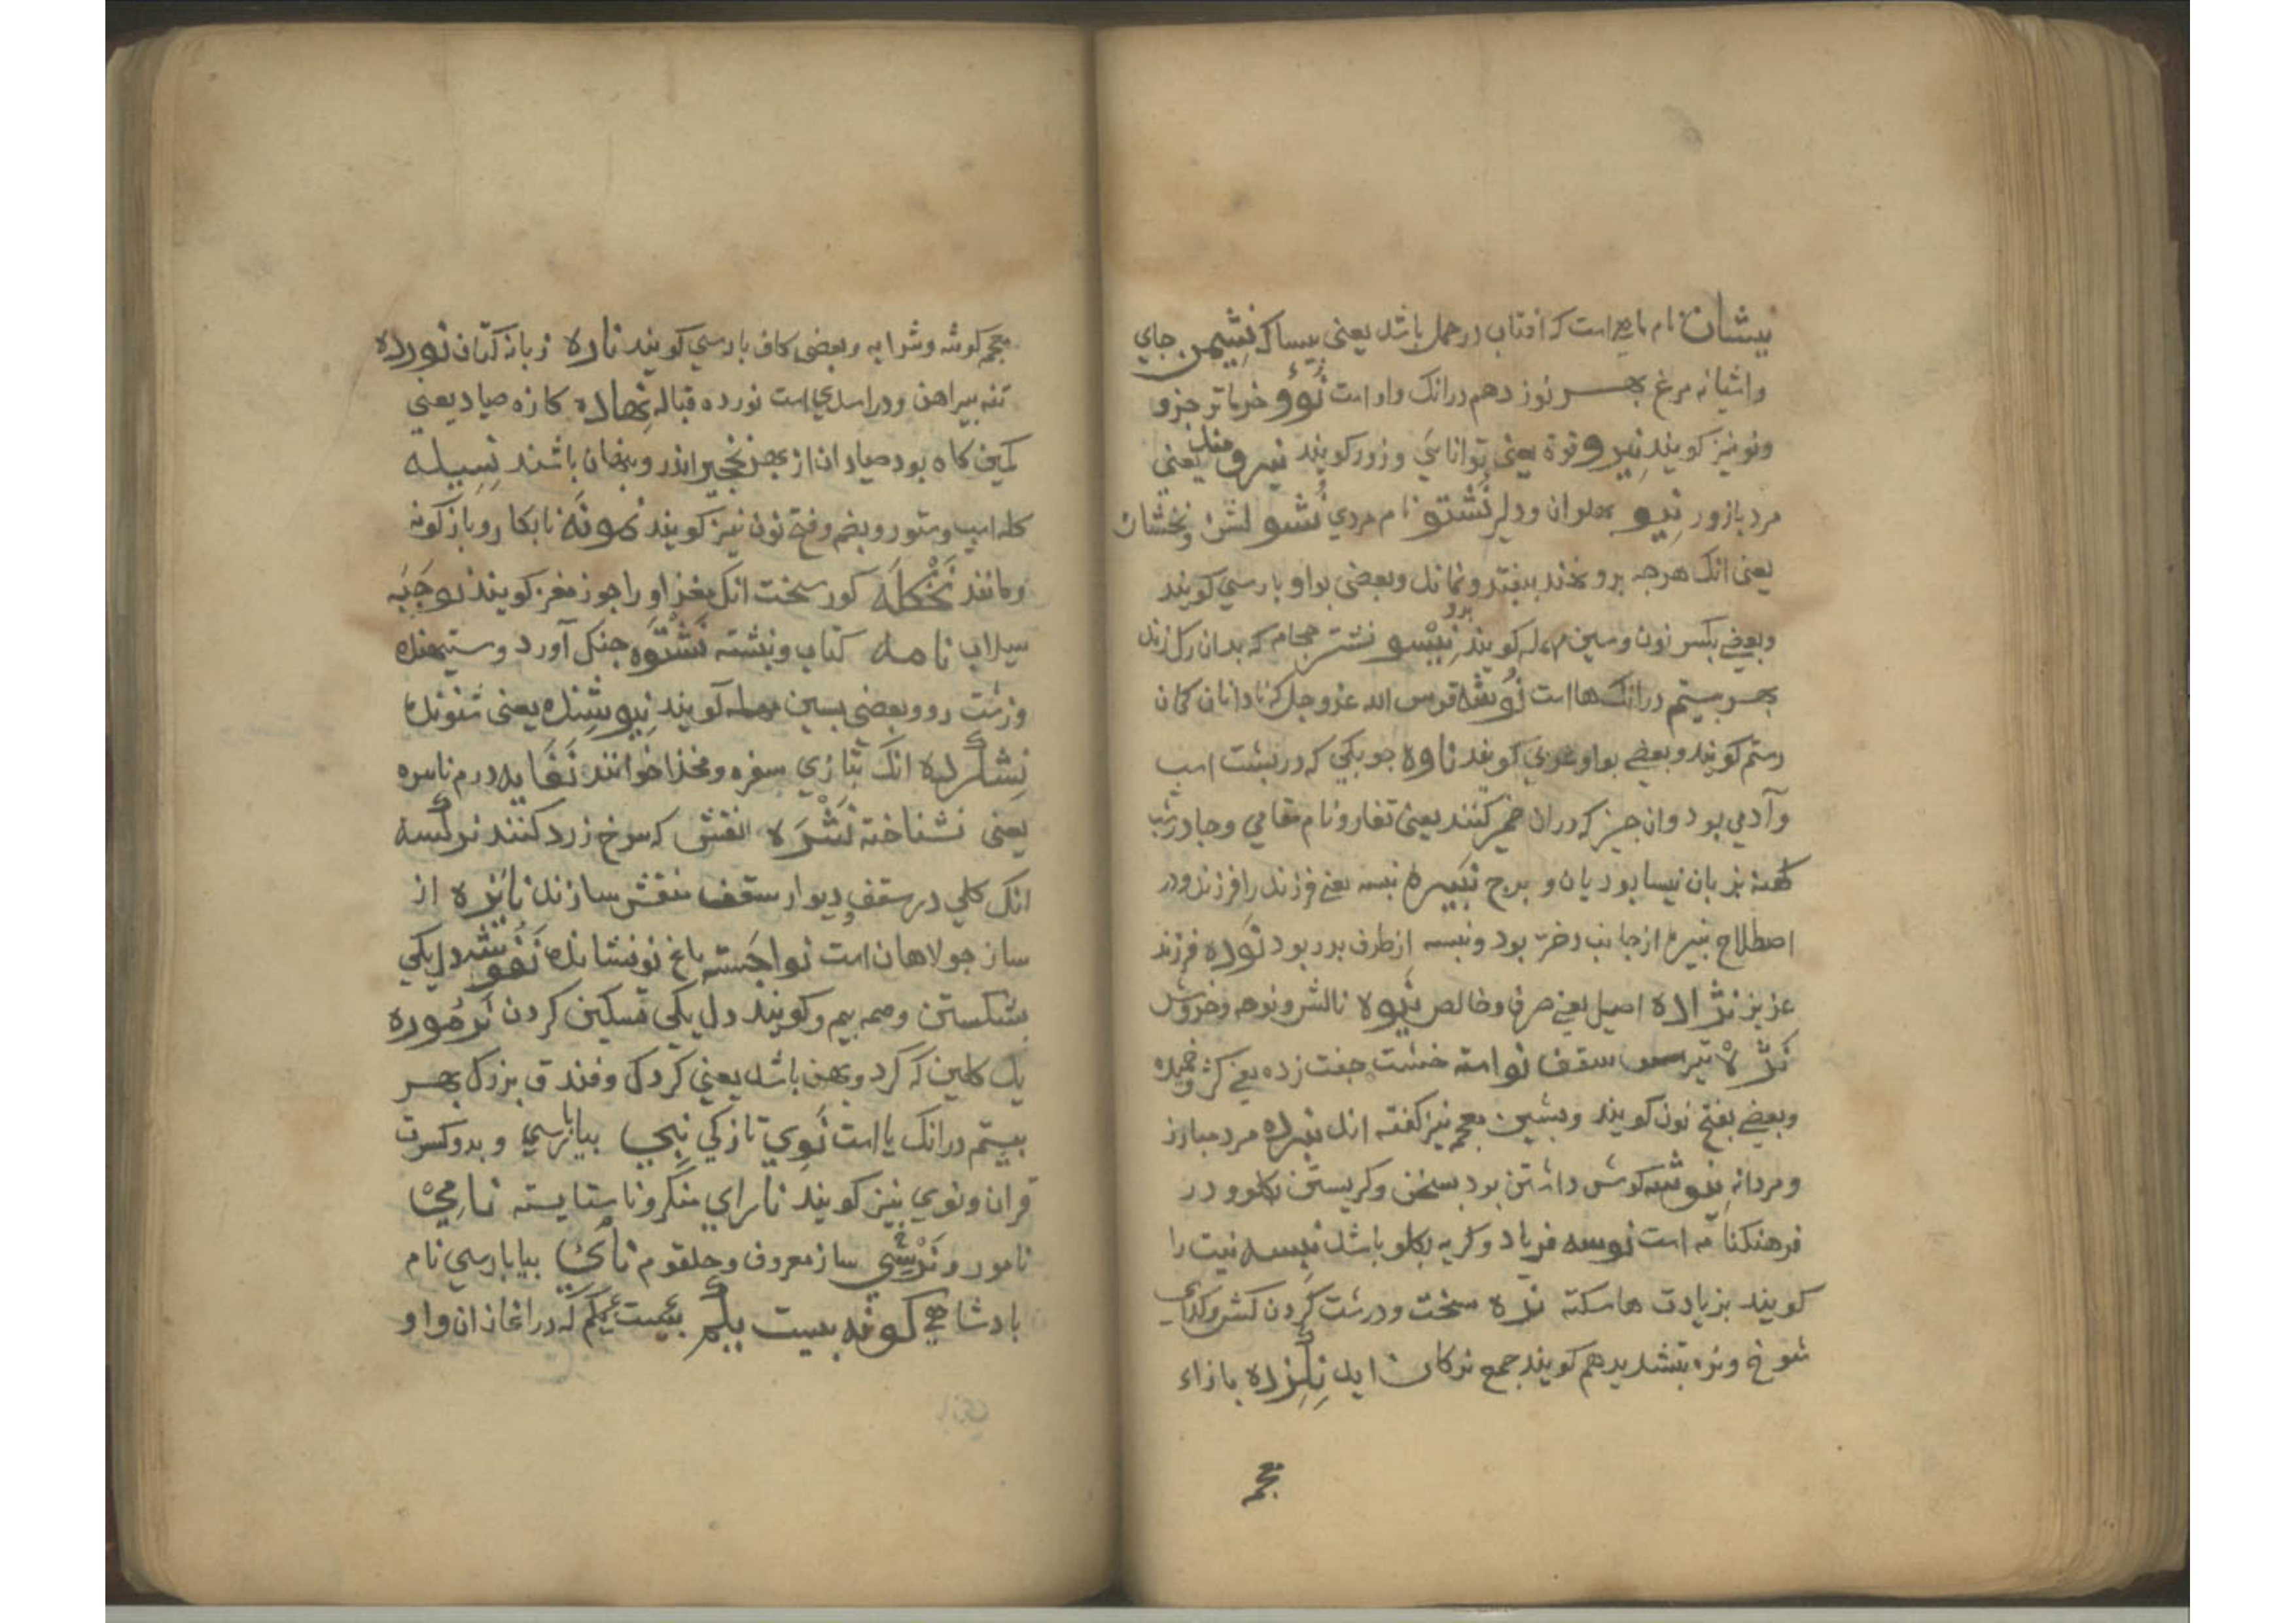 نیسان نام ماهی است که افتاب در حمل باشد یعنی بیساک نشیمن جای
واشیانه مرغ بهر نوزدهم درانک واو است نوؤ خرما تر جزو
ونو نیز کویند نیرو قوة یعنی توانایی وزور کویند نیرو مند یعنی
مرد بازور نیو بهلوان ودلیر نشتو نام مردی نشو لشن ونخشان
یعنی انک هرجه برو نهند بیفتد ونماند وبعضی بواو بارسی کویند
وبعضی بکسر نون وسین مهمله کویند نیشو نشتر حجام که بدان رک زنند
بهر بیستم درانک ها است نوشه قوس الله عز وجل که نادانان کمان
رستم کویند وبعضی بواو عربی کویند ناوه جوبکی که در نبشت اسب
وآدمی بود وان جیز که دران خمیر کنند یعنی تغار ونام مقامی وجادر شب
کهنه بزبان نیسابوریان و برج نبیره نبسه یعنی فرزند را فرزند ودر
اصطلاح نبیره ازجانب دختر بود ونبسه ازطرف بدر بود نوده فرزند
عزیز نژاده اصیل یعنی صرف وخالص نیوه نالش ونوحه وخروش
نژه تیر سقف نواسته خشت جفت زده یعنی کژ وخمیده
وبعضی بفتح نون کویند وبشین معجم نیز کفته اند نبرده مرد مبارز
ومردانه نیوشه کوش داشتن بود بسخن وکریستن بکلو ودر
فرهنکنامه است نوسه فریاد وکریه بکلو باشد نیسه نیت را
کویند بزیادت ها سکته نره سخت ودرشت کردن کش وکدای
شوخ ونره بتشدید هم کویند جمع نرکان اید نکژده بازاء
معجم
معجم کوشه وشرابه وبعضی کاف بارسی کویند ناره زبانه کبّان نورده
تنه بیراهن ودر اسدی است نورده قباله نهاده کازه صیاد یعنی
کمین کاه بود صیادان از بهر نخجیر اندرو بنهان باشند نسیله
کله اسب وستور وبضم وفتح نون نیز کویند نمونه نابکار وبازکونه
ومانند نخکله کوز سخت انک مغز او را جوز مغز کویند نوجبه
سیلاب نامه کتاب ونبشته نستوه جنک آور دوستیهنده
وزشت رو وبعضی بسین مهمله کویند نیوشنده یعنی شنونده
نشکرده انک بتازی سفره ومخذا خوانند نفایه درم ناسره
یعنی نشناخته نشره نقش که سرخ زرد کنند نرکسه
انک کلی در سقف ودیوار سقف منقش سازند نایژه از
ساز جولاهان است نواجسته باغ نونشانده نغوشه دل یکی
شکستن وصمه بیم وکویند دل یکی مسکین کردن نرموره
یک کلین که کرد وبهن باشد یعنی کردک وفندق بزرک بهر
بیستم درانک یا است نوی تازکی نبی بیا بارسی وبدو کسرت
قران ونوی نیز کویند ناسرای منکر وناستایسته نامی
نامور و نرمشی ساز معروف وحلقوم نای بیا بارسی نام
بادشاهی کونه بیست یکم بیست یکم که در اغاز ان واو